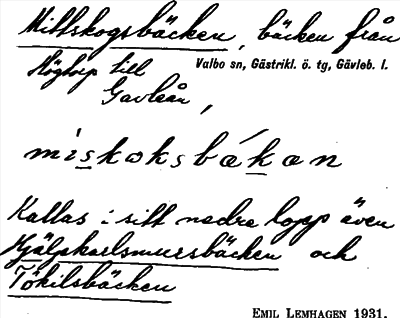 Mittskogsbäcken, bäcken från
Högtorp till Valbo sn, Gästrikl. ö. tg, Gävleb. l.
Gavleån,
miskoksbákan
Kallas i sitt nedre lopp även
Hjälpkarlsmursbäcken och
Tökilsbäcken
EMIL LEMHAGEN 1931.